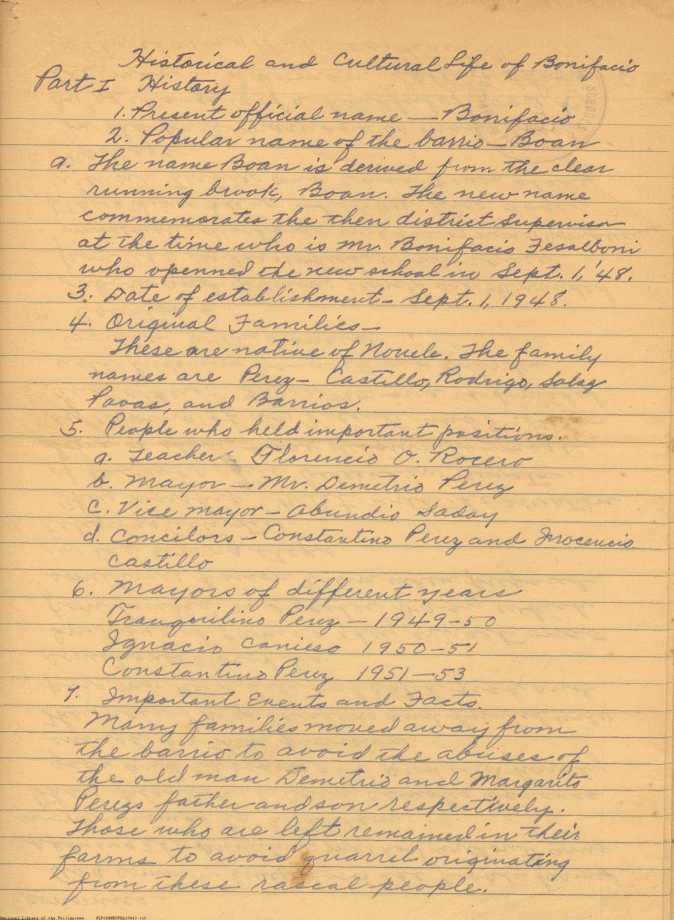 Historical and Cultural Life of Bonifacio
Part I History
1. Present official name — Bonifacio
2. Popular name of the barrio — Boan
a. The name Boan is derived from the clear
running brook, Boan. The new name
commemorates the then district supervisor
at the time who is Mr. Bonifacio Tesalboni
who openned the new school in Sept. 1, '48.
3. Date of establishment — Sept. 1, 1948.
4. Original Families —
These are native of Novele. The family
names are Perez — Castillo, Rodrigo,
Pavas, and Barrios.
5. People who held important positions.
a. Teacher — Florencio O. Rocero
b. Mayor — Mr. Demetrio Perez
c. Vice mayor — Abundio Saday
d. Concilors — Constantino Perez and Inocencio
Castillo
6. Mayors of different years
Tranquilino Perez — 1949-50
Ignacio Canieso 1950-51
Constantino Perez 1951-53
7. Important Events and Facts.
Many families moved away from
the barrio to avoid the abuses of
the old man Demetrio and Margarito
Perezs father and son respectively.
Those who are left remained in their
farms to avoid quarrel originating
from these rascal people.
National Library of the Philippines